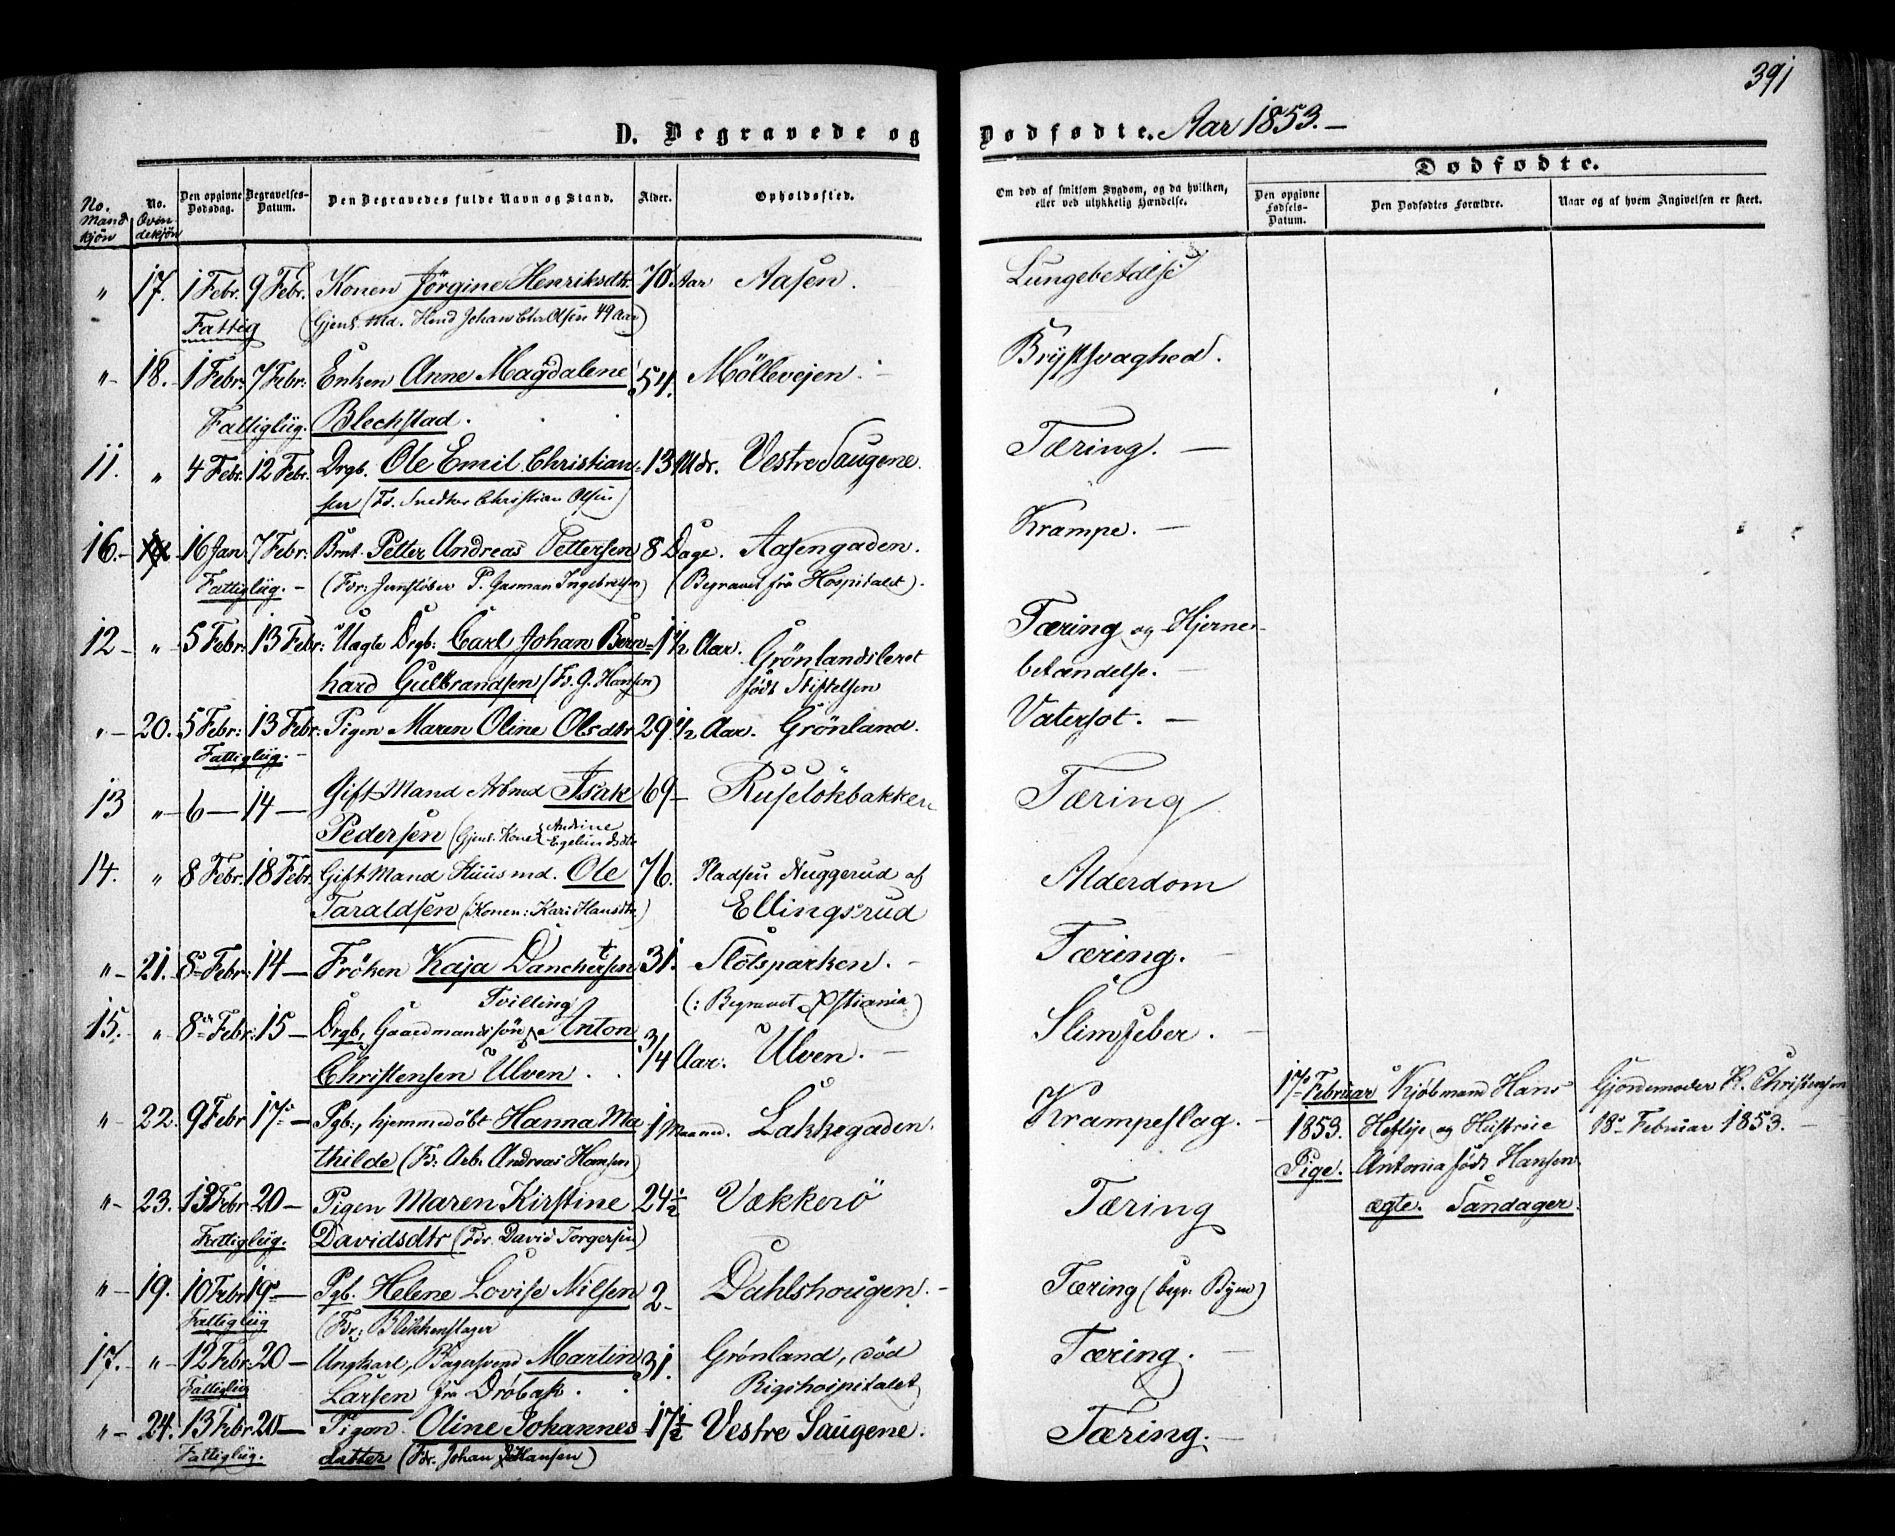 391
D. Begravede og Dødfødte. Aar 1853.-
Dødfødte.
No. Mandkjøn
No. Qvindekjøn
Den opgivne Dødsdag.
Begravelses-Datum.
Den Begravedes fulde Navn og Stand.
Alder.
Opholdssted.
Om død af smitsom Sygdom, og da hvilken,
eller ved ulykkelig Hændelse.
Den opgivne Fødsels-Datum.
Den Dødfødtes Forældre.
Naar og af hvem Angivelsen er skeet.
" 17. 1 Febr. 9 Febr. Konen Jörgine Henriksdtr. 70 Aar Aasen. Lungebetdlse
Fattig (Gjenl. Md. Johan Chr Olsen 49 Aar)
" 18. 1 Febr: 7 Febr: Enken Anne Magdalene 54. Möllevejen. Brÿstsvaghed.
Fattiglüg. Blechstad.
11. " 4 Febr. 12 Febr. Drgb. Ole Emil Christian- 13 Mdr. Vestre Saugene. Tæring.
sen (Fd. Snedker Christian Olsen)
16. 16 Jan 7 Febr: Brnt. Petter Andreas Pettersen 8 Dage. Aasengaden. Krampe.
Fattiglüg. (Fdr: P. Garman Ingebretsen) (Begravet fra Hospitalet).
12 " 5 Febr: 13 Febr: Uægte Drgb: Carl Johan Bern= 1 1/2 Aar. Grönlandsleret Tæring og Hjerne-
hard Gulbrandsen (Fd. G. Hansen) født Stiftelsen betændelse.
" 20. 5 Febr: 13 Febr: Pigen Maren Oline Olsdtr 29 1/2 Aar. Grönland. Vatersot.
Fattiglüg.
13 " 6 14 Gift Mand Arbmd Isak 69 Ruselökbakken Tæring
Pedersen (Gjenl. Kone Andrine Engelünsdtr
14. " 8 Febr. 18 Febr. Gift Mand Hüusmd. Ole 76. Pladsen Nuggerud af Alderdom
Taraldsen (Konen: Kari Hansdtr) Ellingsrud
" 21. 8 Febr: 14 Fröken Kaja Danckertsen 31. Slotsparken. Tæring.
Tvilling (: Begravet Xstiania)
15. " 8 Febr: 15 Drgb. Gaardmandssön Anton 3/4 Aar: Ulven. Slimfeber.
Christensen Ulven.
17 Februar Kjöbmand Hans Gjordemoder K. Christensen
" 22. 9 Febr 17 Pgb., hjemmedöbt Hanna Ma 1 Maaned. Lakkegaden. Krampeslag. 1853. Heftye og Hüstrüe 18 Februar 1853.
thilde (Fd: Arb. Andreas Hansen) Pige. Antonia født Hansen
" 23. 13 Febr 20 Pigen Maren Kirstine 24 1/2 Vækkerö Tæring ægte. Sandager.
Fattiglüg. Davidsdtr (Fdr. David Torgersen)
" 19. 10 Febr 19 Pgb. Helene Lovise Nilsen 2 Dahlshougen. Tæring (begr. Byen)
Fattiglüg (Fdr: Blikkenslager
17. " 12 Febr: 20 Ungkarl, Bagersvend Martin 31. Grönland, död Tæring.
Fattiglüg Larsen fra Dröbak. Rigshospitalet
" 24. 13 Febr: 20 Pigen Oline Johannes 17 1/2 Vestre Saugene. Tæring.
Fattiglüg. datter (Fdr. Johan Hansen)